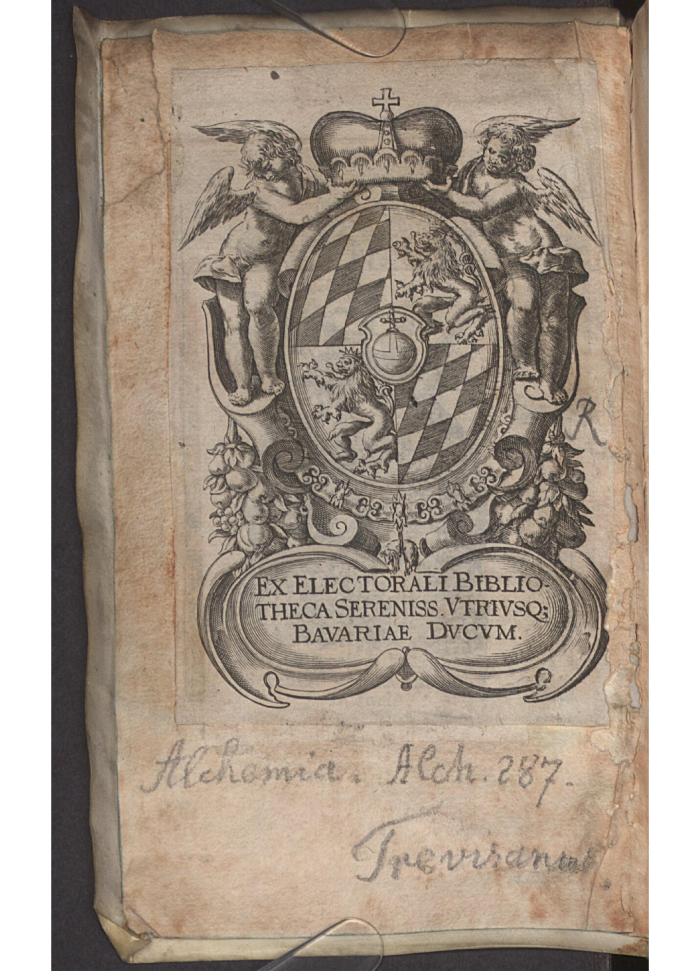 R
EX ELECTORALI BIBLIO-
THECA SERENISS. VTRIVSQ;
BAVARIAE DVCVM.
Alchemia. Alch. 287.
Trevisanus